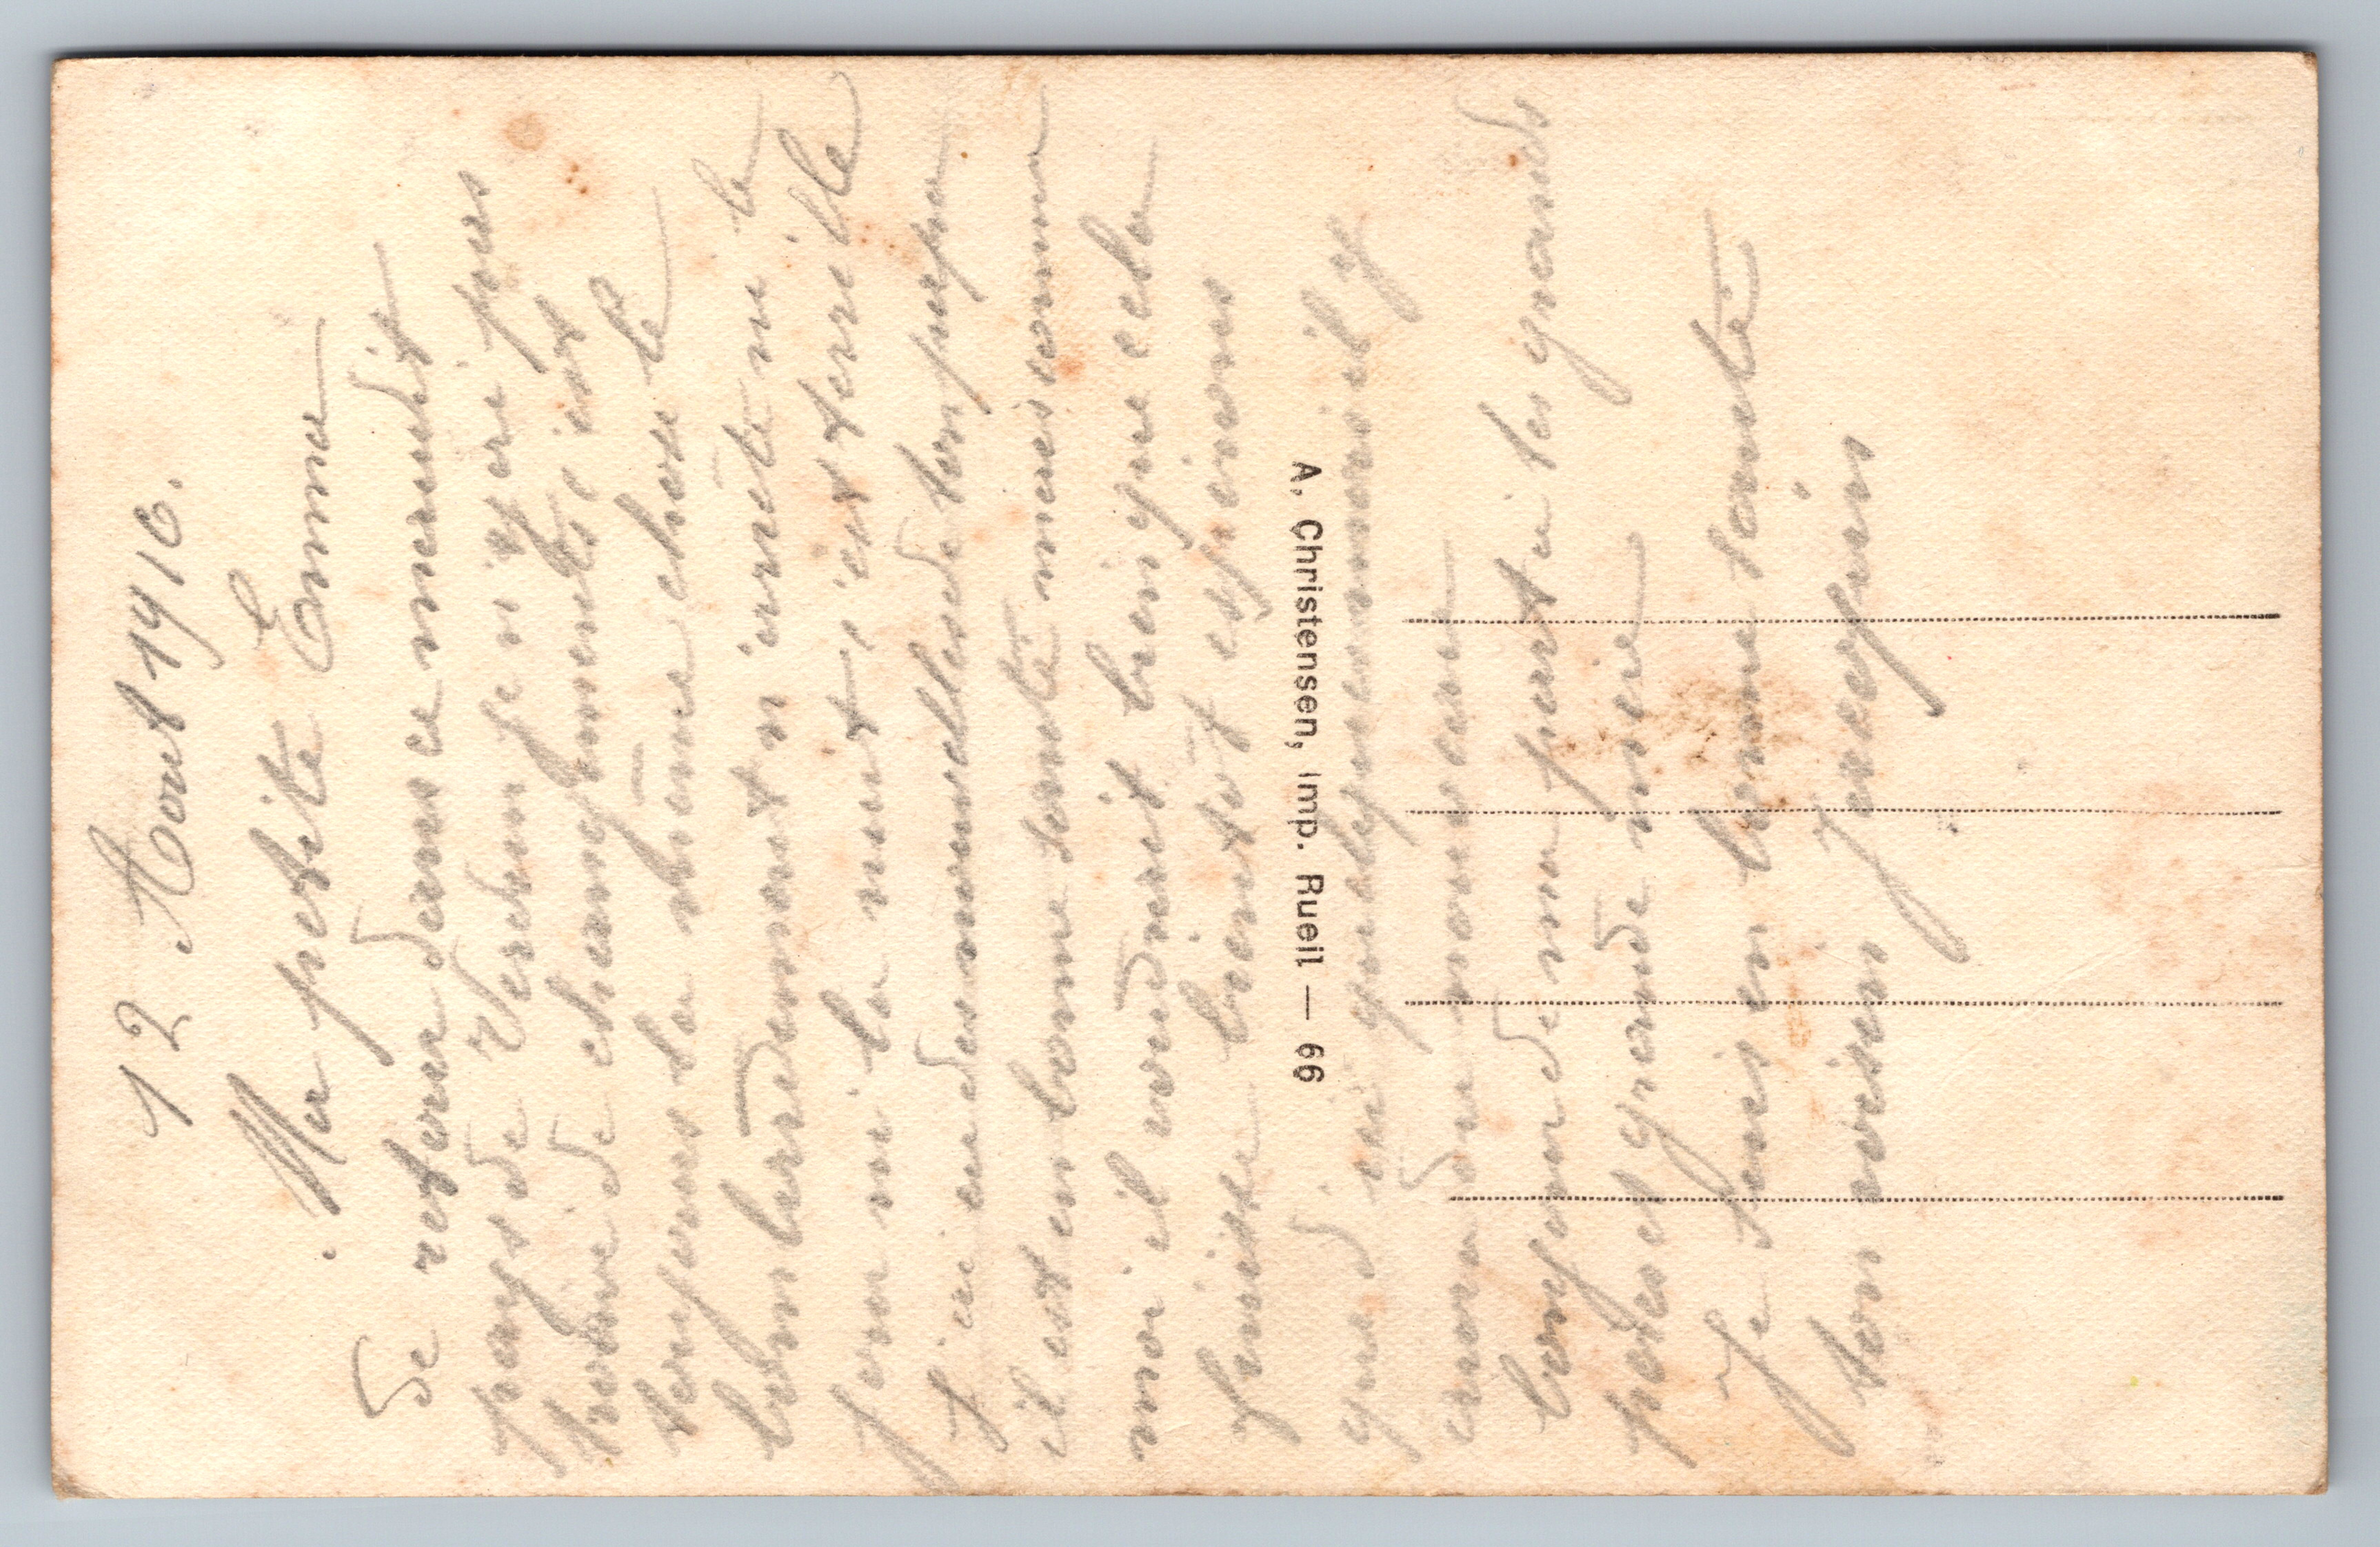 12 Aout 1916.
Ma petite Emma
de retour dans ce maudit
pays de Verdun je n'y ai pas
trouvé de changements c'est
toujours la même chose le
bombardement n'arrête ni le
jour ni la nuit c'est terrible
J'ai eu des nouvelles de ton papa
il est en bonne santé mais comme
moi il voudrait bien que cela
finisse bientôt espérons
A. Christensen, Imp. Rueil — 66
que d'ici quelques mois il y
aura du nouveau
bonjour de ma part à tes grands
pères et grande mère
Je suis en bonne santé
ton voisin